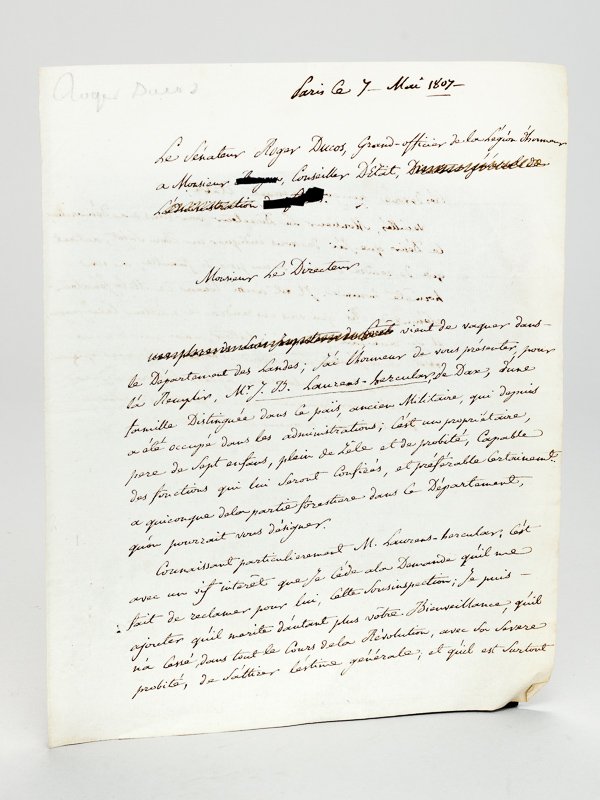 Roger Ducos
Paris le 7 Mai 1807
Le Sénateur Roger Ducos, Grand-officier de la Légion d'honneur
a Monsieur , Conseiller D'État,
L'administration
Monsieur Le Directeur
vient de vaquer dans
le Département des Landes; J'ai l'honneur de vous présenter, pour
la Remplir, Mr. J. B. Laurens-hercular, de Dax, d'une
famille Distinguée dans ce païs, ancien Militaire, qui depuis
a été occupé dans les administrations; C'est un propriétaire,
pere de Sept enfans, plein de Zele et de probité, Capable
des fonctions qui lui Seront Confiées, et préférable Certainemt.
a quiconque dela partie forestiere dans ce Département,
qu'on pourrait vous désigner.
Connaissant particulierement M. Laurens-hercular, C'est
avec un vif interêt que Je Cède ala Demande qu'il me
fait de reclamer pour lui, Cette Sousinspection; Je puis -
ajouter qu'il merite d'autant plus votre Bienveillance, qu'il
n'a Cessé dans tout le Cours dela Révolution, avec Sa Severe
probité, de S'attirer l'estime générale; et qu'il est Surtout